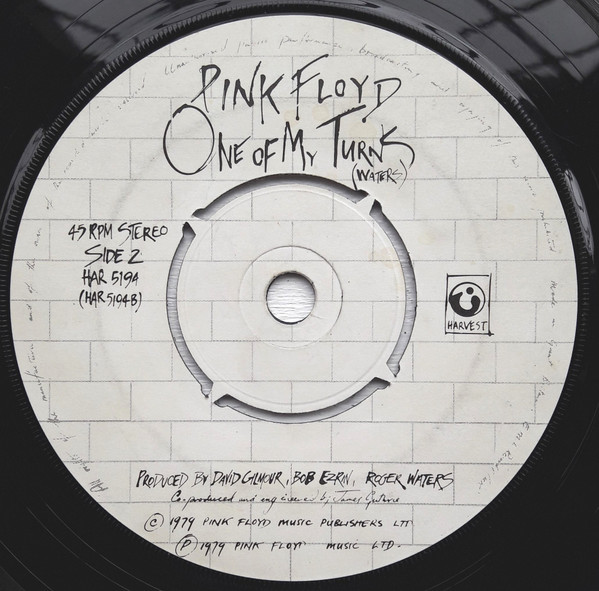 PINK FLOYD
ONE OF MY TURNS
(WATERS)
45 RPM STEREO
SIDE 2
HAR 5194
(HAR 5194B)
HARVEST
PRODUCED BY DAVID GILMOUR, BOB EZRIN, ROGER WATERS
Co-produced and engineered by James Guthrie
© 1979 PINK FLOYD MUSIC PUBLISHERS LTD
℗ 1979 PINK FLOYD MUSIC LTD.
All rights of the manufacturer and of the owner of the recorded work reserved Unauthorised public performance broadcasting and copying of this record prohibited Made in Great Britain